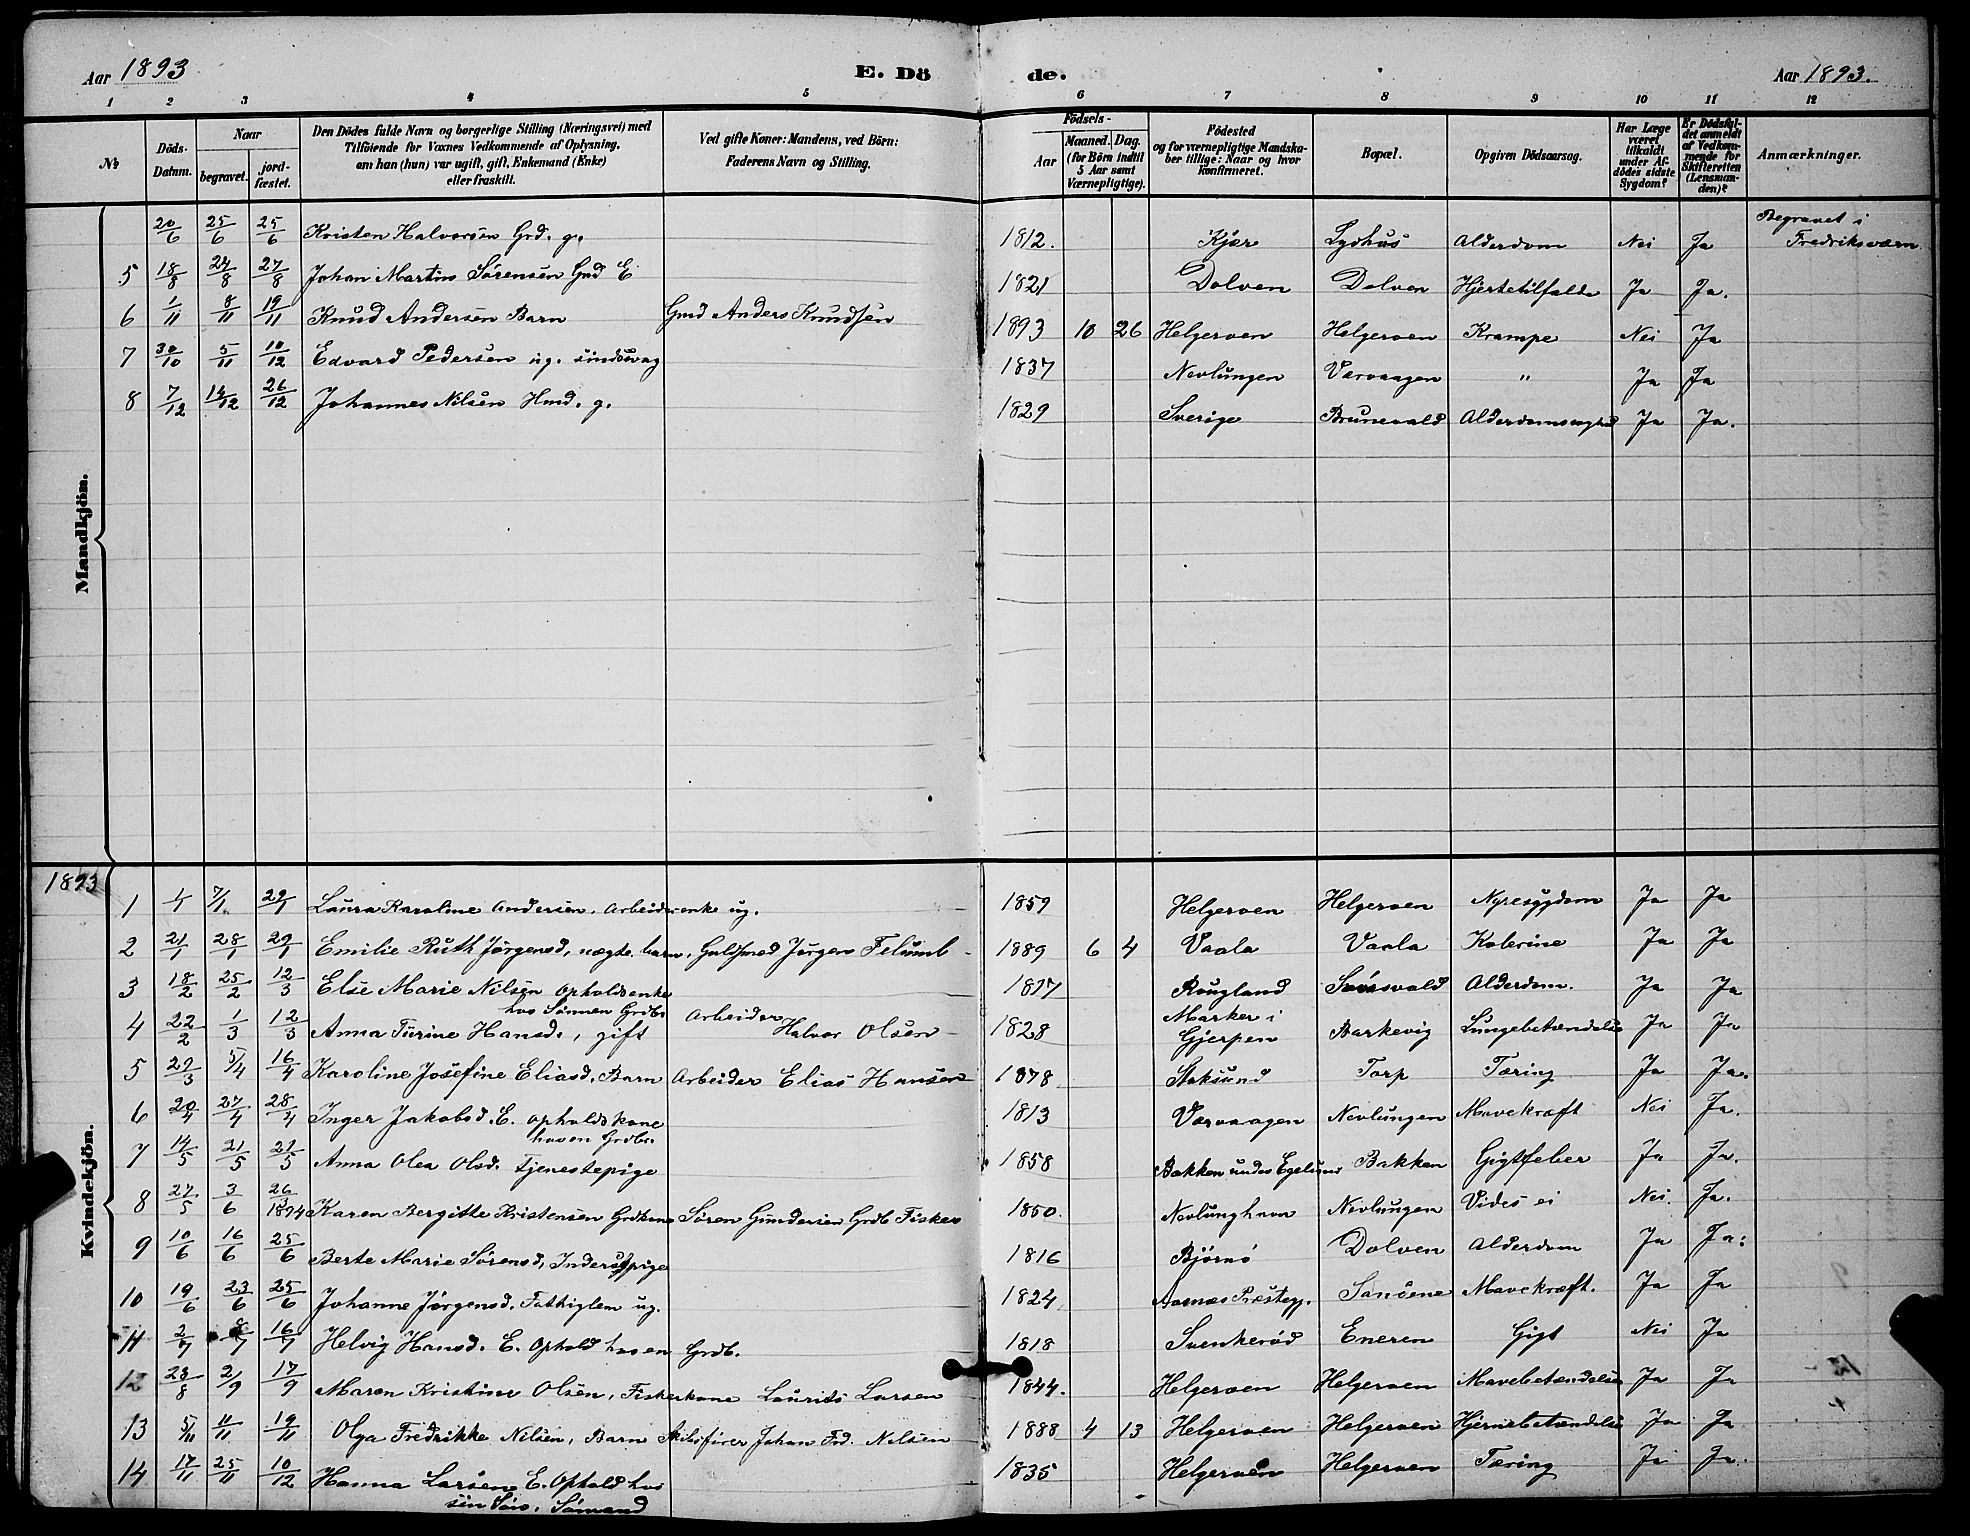 Aar 1893
E. Dö de.
Aar 1893.
1 2 3 4 5 6 7 8 9 10 11 12
№
Döds-Datum.
Naar begravet.
jordfæstet.
Den Dödes fulde Navn og borgerlige Stilling (Næringsvei) med
Tilföiende for Voxnes Vedkommende af Oplysning,
om han (hun) var ugift, gift, Enkemand (Enke)
eller fraskilt.
Ved gifte Koner: Mandens, ved Börn:
Faderens Navn og Stilling.
Födsels-
Aar
Maaned. Dag.
(for Börn indtil
5 Aar samt
Værnepligtige).
Födested
og for værnepligtige Mandska-
ber tillige: Naar og hvor
konfirmeret.
Bopæl.
Opgiven Dödsaarsag.
Har Læge
været
tilkaldt
under Af-
dödes sidste
Sygdom?
Er Dödsfal-
det anmeldt
af Vedkom-
mende for
Skifteretten
(Lensman-
den)?
Anmærkninger.
Mandkjön.
20/6 25/6 25/6 Kristen Halvorsen Grd. g. 1812. Kjær Lydhus Alderdom Nei Ja Begravet i
Fredriksværn
5 18/8 24/8 27/8 Johan Martin Sørensen Gmd E 1821 Dolven Dolven Hjertetilfælde Ja Ja.
6 1/11 8/11 19/11 Knud Andersen Barn Gmd Anders Knudsen 1893 10 26 Helgeroen Helgeroen Krampe Nei Ja
7 30/10 5/11 10/12 Edvard Pedersen ug. sindssvag 1837 Nevlungen Værvaagen " Ja Ja
8 7/12 14/12 26/12 Johannes Nilsen Hmd. g. 1829 Sverige Brunevald Ja Ja.
1893
Kvindekjön.
1 4/1 7/1 29/1 Laura Karoline Andersen, Arbeiderenke ug. 1859 Helgeroen Helgeroen Nyresygdom Ja Ja
2 21/1 28/1 29/1 Emilie Ruth Jørgensd, uægte barn, Guldsmed Jørgen Felumb 1889 6 4 Vaala Vaala Kolerine Ja Ja
3 18/2 25/2 12/3 Else Marie Nilsen Opholdsenke 1817 Rougland Alderdom. Ja Ja
hos Sønnen Grdbr
4 22/2 1/3 12/3 Anna Turine Hansd., gift Arbeider Halvor Olsen 1828 Marker i
Gjerpen Barkevig Lungebetændelse Ja Ja
5 29/3 5/4 16/4 Karoline Josefine Eliasd, Barn Arbeider Elias Hansen 1878 Stoksund Torp Tæring Ja Ja.
6 20/4 27/4 28/4 Inger Jakobsd. E. opholdskone 1813 Værvaagen Nevlungen Mavekræft Nei Ja.
hos en Grdbr.
7 14/5 21/5 21/5 Anna Olea Olsd. Tjenestepige 1858 Bakken under Egelund Bakken Gigtfeber Ja Ja.
8 27/5 3/6 26/3 1894 Karen Bergitte Kristensen Grdkone Søren Gundersen Grdb Fisker 1850. Nevlunghavn Nevlungen Vides ei Nei. Ja.
9 10/6 16/6 25/6 Berte Marie Sørensd, Inderstpige 1816 Bjørnø Dolven Alderdom Ja Ja.
10 19/6 23/6 25/6 Johanne Jørgensd. Fattiglem ug. 1824 Præstegj. Mavekræft. Ja Ja
11 2/7 8/7 16/7 Helvig Hansd. E. Ophold hos en Grdb. 1818 Svenkerød Eneren Gigt Nei Ja
12 28/8 2/9 17/9 Maren Kristine Olsen, Fiskerkone Laurits Larsen 1844. Helgeroen Helgeroen Mavebetændelse Ja Ja
13 5/11 11/11 19/11 Olga Fredrikke Nilsen, Barn Skibsfører Johan Frd. Nilsen 1888 4 13 Helgeroen Helgeroen Hjernebetændelse Ja Ja
14 17/11 25/11 10/12 Hanna Larsen E. Ophold hos 1835 Helgeroen Helgeroen Tæring Ja Ja.
sin Sømand